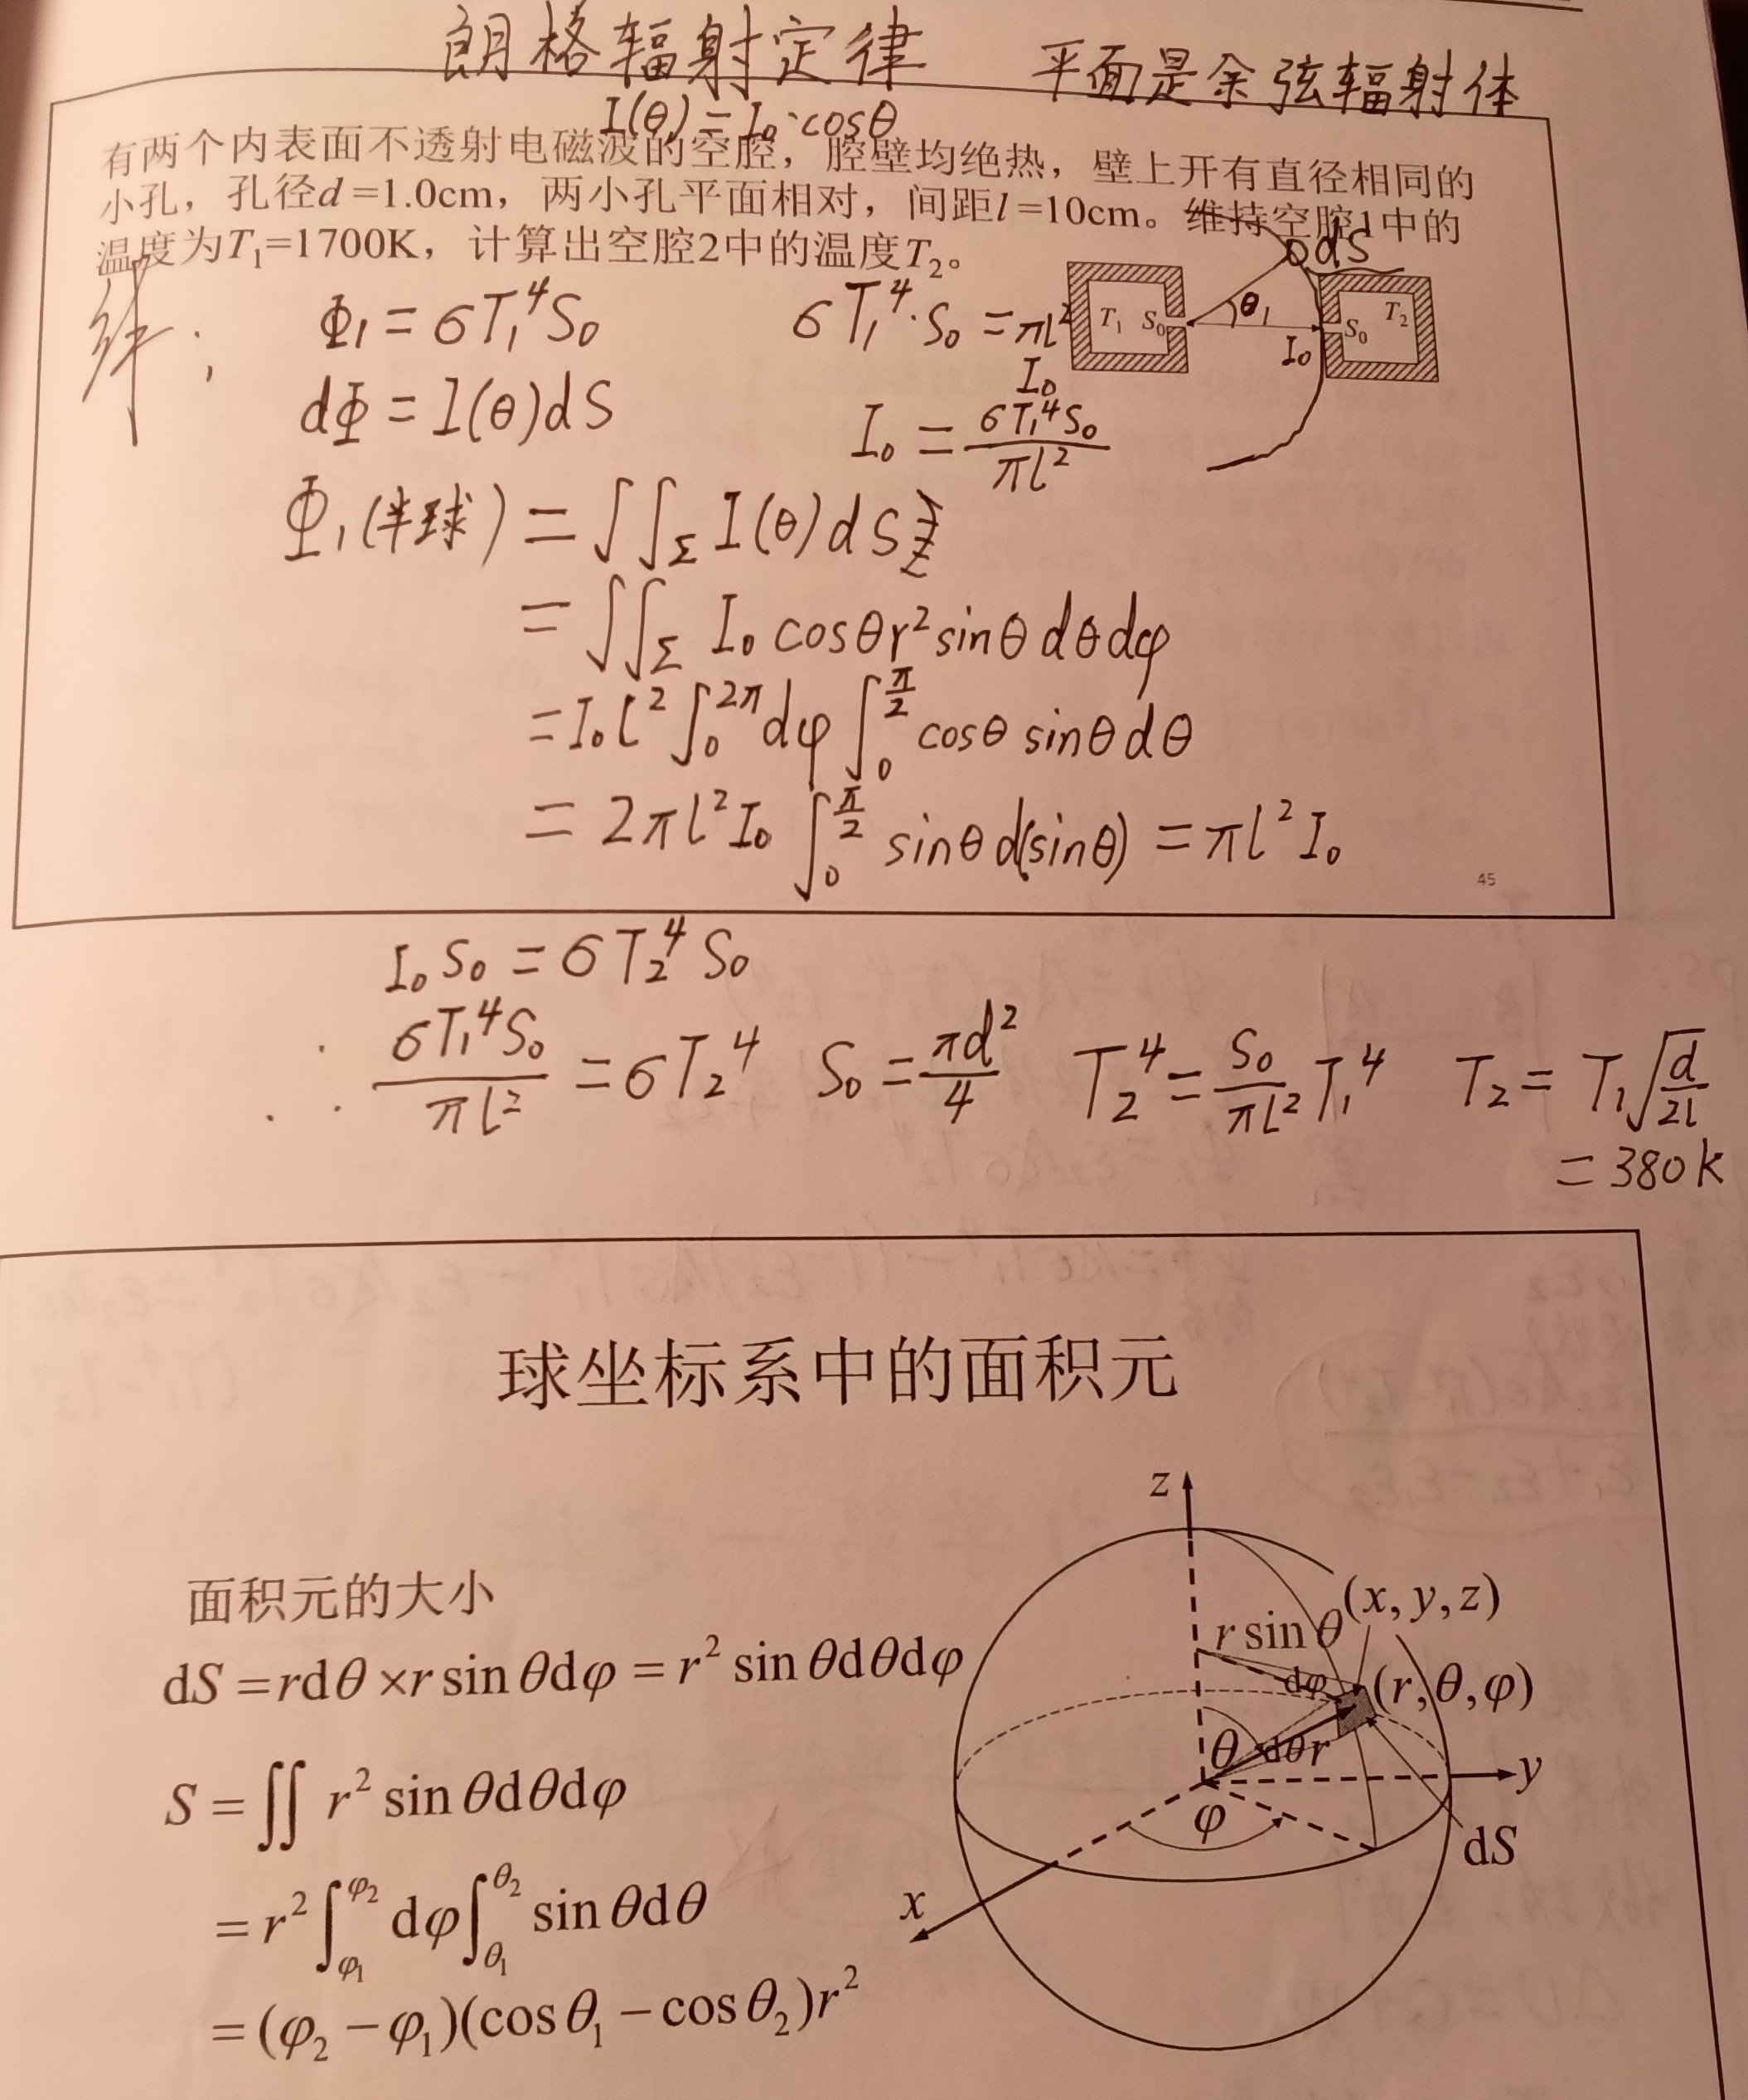 朗格辐射定律 平面是余弦辐射体
I(θ) = I₀·cosθ
有两个内表面不透射电磁波的空腔，腔壁均绝热，壁上开有直径相同的
小孔，孔径d =1.0cm，两小孔平面相对，间距l =10cm。维持空腔1中的
温度为T₁=1700K，计算出空腔2中的温度T₂。
dS
θ₁
T₁ S₀
I₀
S₀ T₂
Φ₁ = σT₁⁴S₀ σT₁⁴·S₀ = πl²I₀
dΦ = I(θ)dS I₀ = σT₁⁴S₀/πl²
Φ₁(半球) = ∬_Σ I(θ)dS
= ∬_Σ I₀ cosθ r² sinθ dθ dφ
= I₀ l² ∫₀^2π dφ ∫₀^π/2 cosθ sinθ dθ
= 2πl²I₀ ∫₀^π/2 sinθ d(sinθ) = πl²I₀
45
I₀S₀ = σT₂⁴S₀
σT₁⁴S₀/πl² = σT₂⁴ S₀ = πd²/4 T₂⁴ = S₀/πl² T₁⁴ T₂ = T₁√(d/2l)
= 380K
球坐标系中的面积元
面积元的大小
dS = rdθ × r sin θdφ = r² sin θdθdφ
S = ∬ r² sin θdθdφ
= r² ∫_φ₁^φ₂ dφ ∫_θ₁^θ₂ sin θdθ
= (φ₂ − φ₁)(cos θ₁ − cos θ₂)r²
z
(x, y, z)
r sin θ
dφ
(r, θ, φ)
θ dθ r
y
φ
dS
x